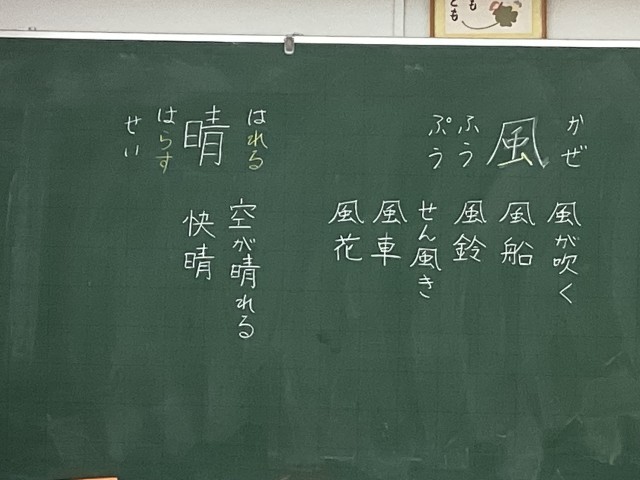 も
とも
かぜ
風
ふう
ぷう
風が吹く
風船
風鈴
せん風き
風車
風花
はれる
晴
はらす
せい
空が晴れる
快晴